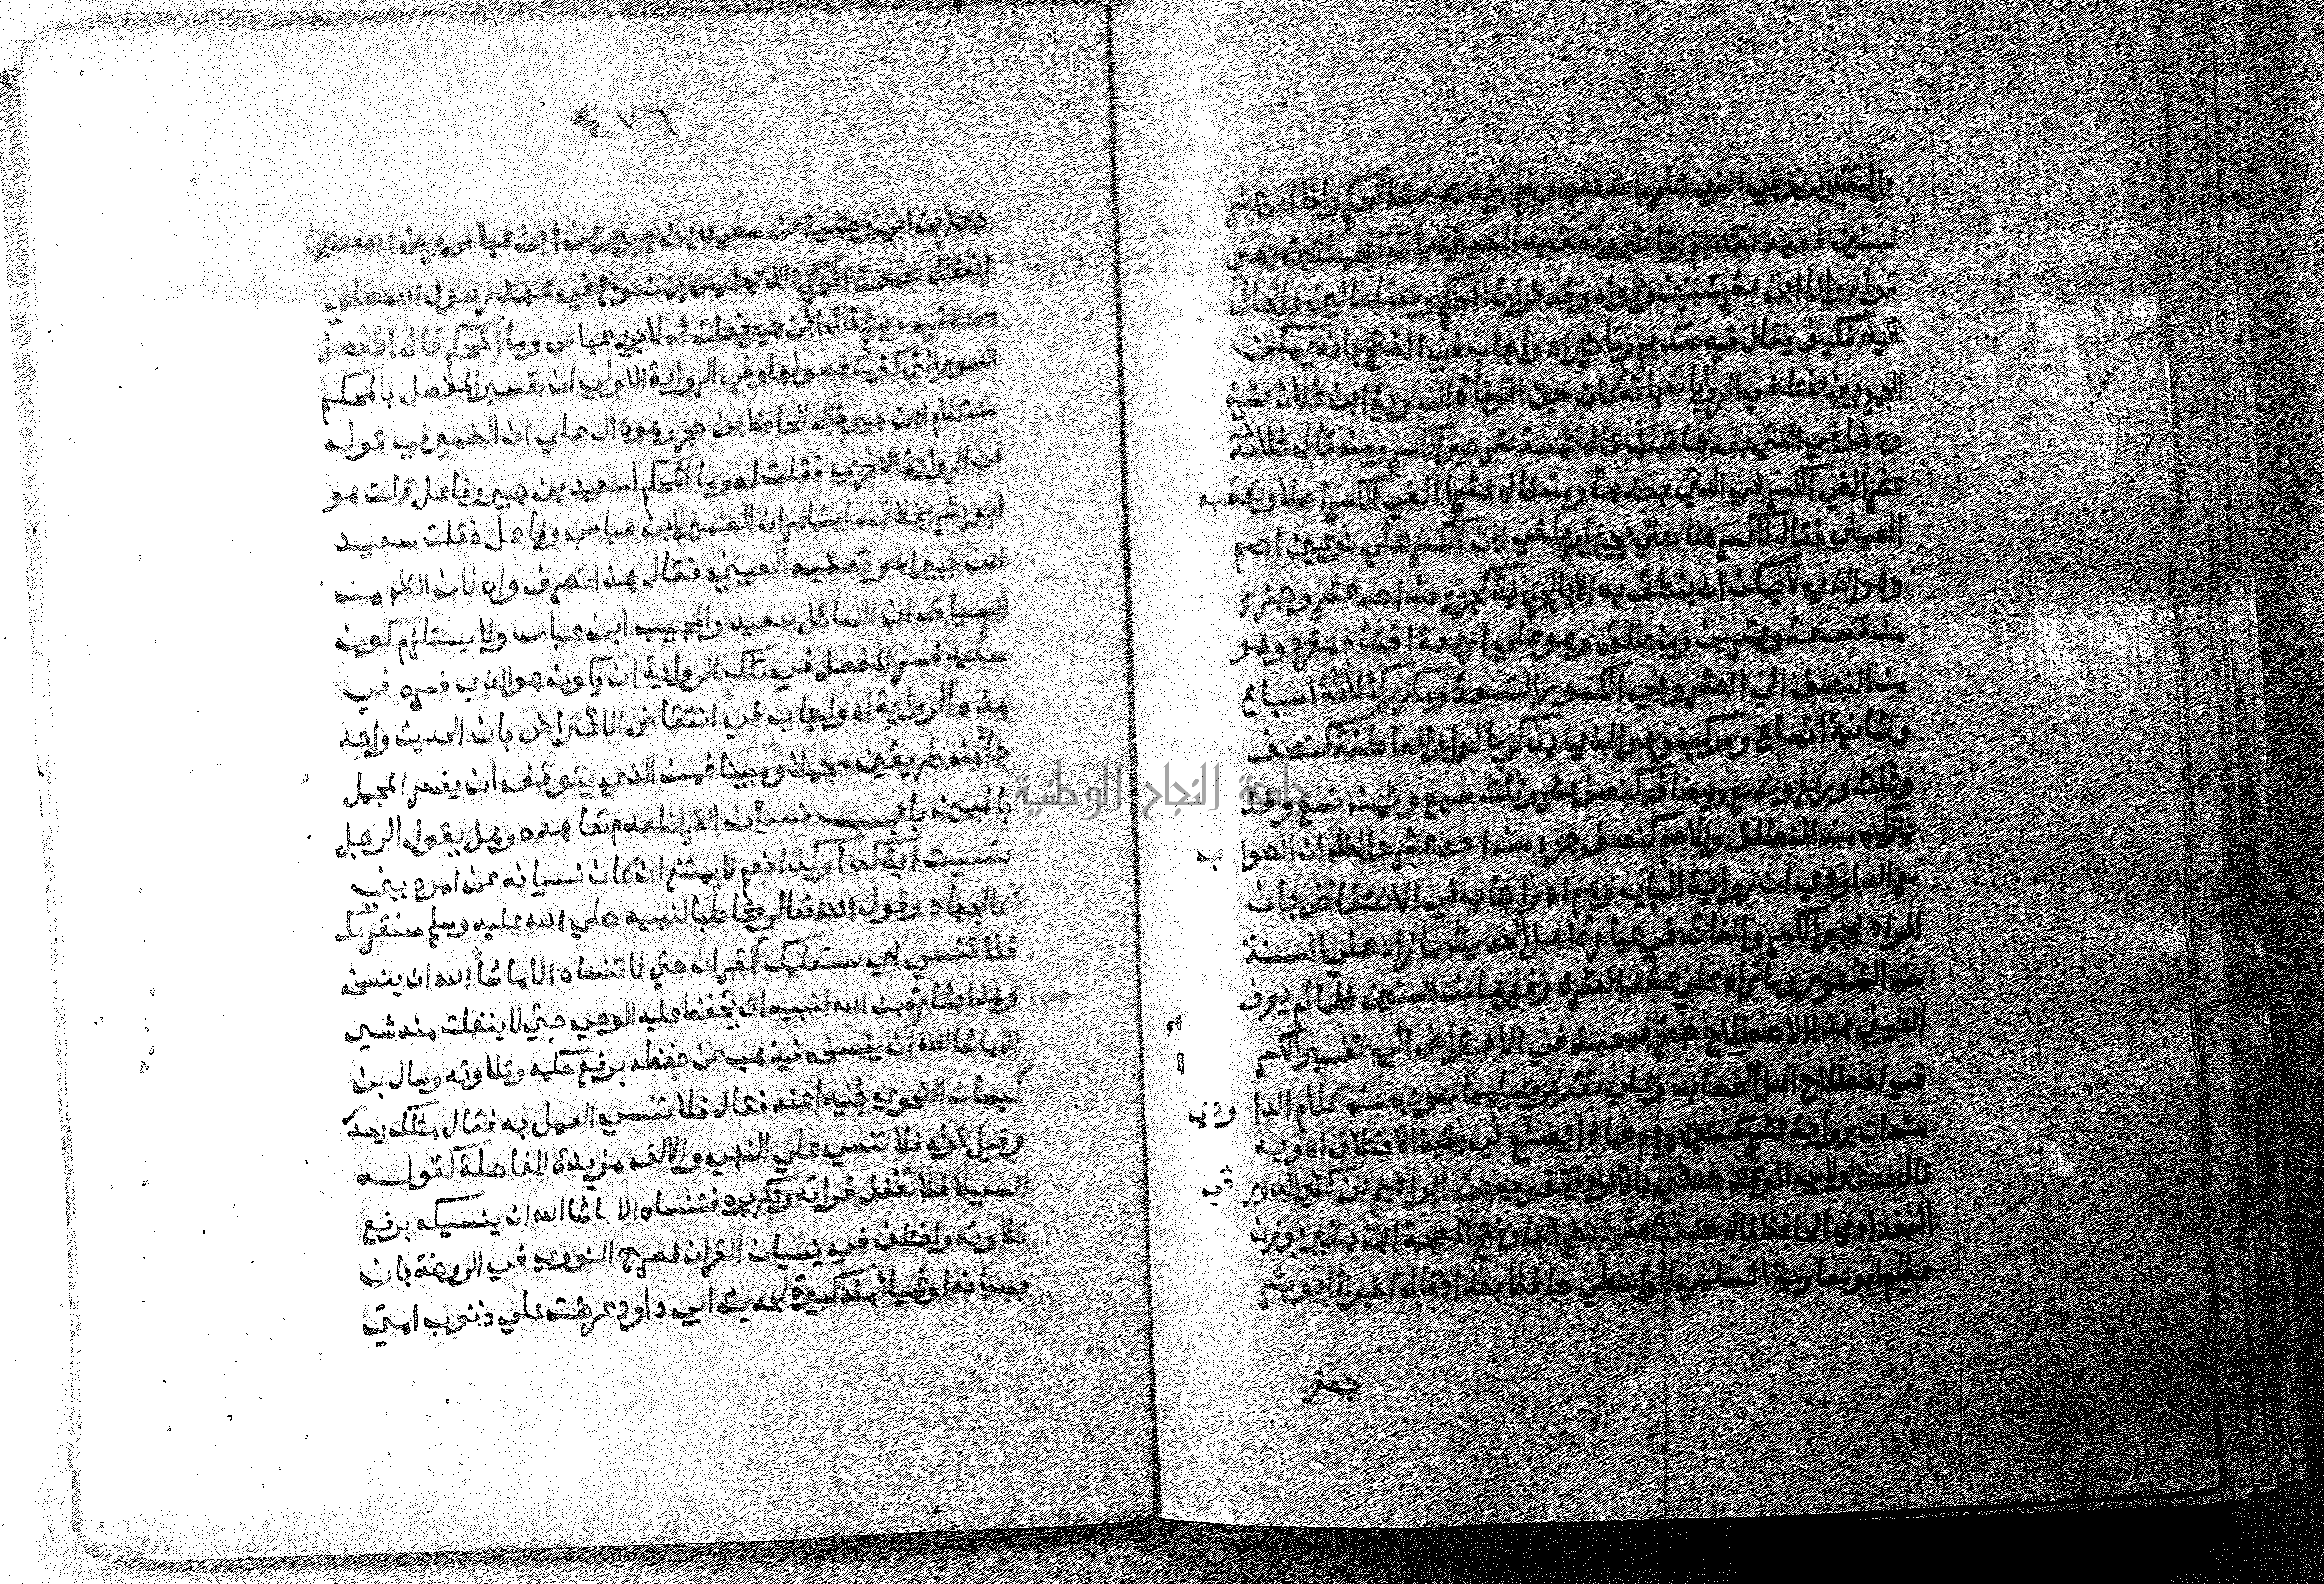 والتقدير توفي النبي صلي الله عليه وسلم وقد جمعت المحكم وانا ابن عشر
سنين ففيه تقديم وتاخير وتعقبه العيني بان الجملتين يعني
قوله وانا ابن عشر سنين وقوله وقد قرات المحكم وقعتا حالين والحال
قيد فكيف يقال فيه تقديم وتاخير اه واجاب في الفتح بانه يمكن
الجمع بين مختلفي الروايات بانه كان حين الوفاة النبوية ابن ثلاث عشرة
ودخل في التي بعدها فمن قال خمسة عشر جبر الكسر ومن قال ثلاثة
عشر الغي الكسر في التي بعدها ومن قال عشرا الغي الكسر اصلا وتعقبه
العيني فقال لا كسر هنا حتي يجبر او يلغي لان الكسر علي نوعين اصم
وهو الذي لا يمكن ان ينطق به الا بالجزية كجزء من احد عشر وجزء
من تسعة وعشرين ومنطق وهو علي اربعة اقسام مفرد وهو
من النصف الي العشر وهي الكسور التسعة ومكرر كثلاثة اسباع
وثمانية اتساع ومركب وهو الذي يذكر بالواو العاطفة كنصف
وثلث وربع وتسع ومضاف كنصف عشر وثلث سبع وثمن تسع وقد
يتركب من المنطق والاصم كنصف جزء من احد عشر والظ ان الصواب
مع الداودي ان رواية الباب وهم اه واجاب في الانتقاض بان
المراد بجبر الكسر والغائه في عبارة اهل الحديث ما زاد علي السنة
من الشهور وما زاد علي عقد العشرة وغيرها من السنين فلما لم يعرف
العيني هذا الاصطلاح جنح بسببه في الاعتراض الي تفسير الكسر
في اصطلاح اهل الحساب وعلي تقدير تسليم ما صوبه من كلام الداودي
من ان رواية عشر سنين وهم فماذا يصنع في بقية الاختلاف اه وبه
قال حدثنا ولابي الوقت حدثني بالافراد يعقوب بن ابراهيم بن كثير الدورقي
البغدادي الحافظ قال حدثنا هشيم بضم الها وفتح المعجمة ابن بشير بوزن
عظيم ابو معاوية السلمي الواسطي حافظ بغداد قال اخبرنا ابو بشر
جعفر
٤٧٦
جعفر بن ابي وحشية عن سعيد بن جبير عن ابن عباس رضي الله عنهما
انه قال جمعت المحكم الذي ليس بمنسوخ في عهد رسول الله صلي
الله عليه وسلم قال ابن جبير فقلت له لابن عباس وما المحكم قال المفصل
السور التي كثرت فصولها وفي الرواية الاولي ان تفسير المفصل بالمحكم
من كلام ابن جبير قال الحافظ بن حجر وهو دال علي ان الضمير في قوله
في الرواية الاخري فقلت له وما المحكم لسعيد بن جبير وفاعل قلت هو
ابو بشر بخلاف ما يتبادر ان الضمير لابن عباس وفاعل فقلت سعيد
ابن جبير اه وتعقبه العيني فقال هذا تصرف واه لان الظ من
السياق ان السائل سعيد والمجيب ابن عباس ولا يستلزم كون
سعيد فسر المفصل في تلك الرواية ان يكون هو الذي فسره في
هذه الرواية اه واجاب في انتقاض الاعتراض بان الحديث واحد
جا من طريقين مجملا ومبينا فمن الذي يتوقف ان يفسر المجمل
بالمبين باب نسيان القران لعدم تعاهده وهل يقول الرجل
نسيت اية كذا وكذا نعم لا يمتنع ان كان نسيانه عن امر ديني
كالجهاد وقول الله تعالي مخاطبا لنبيه صلي الله عليه وسلم سنقرئك
فلا تنسي اي سنعلمك القران حتي لا تنساه الا ما شا الله ان ينسخه
وهذا بشارة من الله لنبيه ان يحفظ عليه الوحي حتي لا ينفلت منه شي
الا ما شا الله ان ينسخه فيذهب عن حفظه برفع حكمه وتلاوته وسال بن
كيسان النحوي جنيدا عنه فقال فلا تنسي العمل به فقال مثلك يصدر
وقيل قوله فلا تنسي علي النهي والالف مزيدة للفاصلة كقوله
السبيلا فلا تغفل قراته وتكريره فتنساه الا ما شا الله ان ينسيكه برفع
تلاوته واختلف في نسيان القران فصرح النووي في الروضة بان
نسيانه او شيا منه كبيرة لحديث ابي داود عرضت علي ذنوب امتي
جامعة النجاح الوطنية